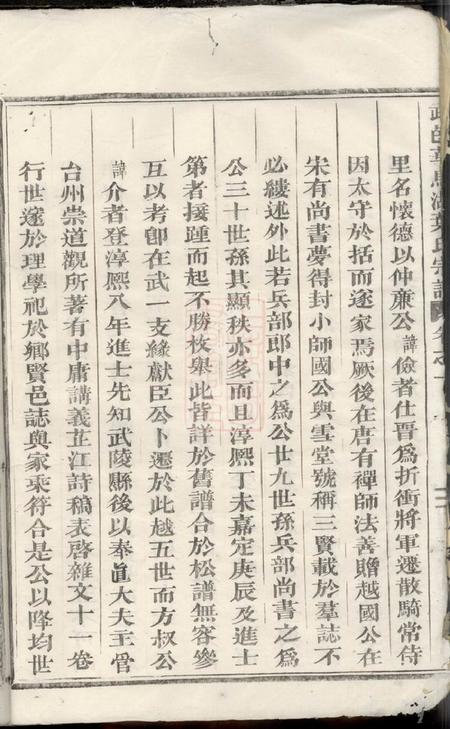 武邑華馬湖葉氏宗譜
里名懷德以仲蕭公諱儉者仕晉爲折衝將軍遷散騎常侍
因太守於括而遂家焉厥後在唐有禪師法善贈越國公在
宋有尚書夢得封小師國公與雪堂號稱三賢載於羣誌不
必縷述外此若兵部郎中之爲公世九世孫兵部尚書之爲
公三十世孫其顯秩亦多而且淳熙丁未嘉定庚辰及進士
第者接踵而起不勝枚舉此皆詳於舊譜合於松譜無容參
互以考卽在武一支緣獻臣公卜遷於此越五世而方叔公
諱介者登淳熙八年進士先知武陵縣後以奉眞大夫主管
台州崇道觀所著有中庸講義芷江詩稿表啓雜文十一卷
行世邃於理學祀於鄉賢邑誌與家乘符合是公以降均世